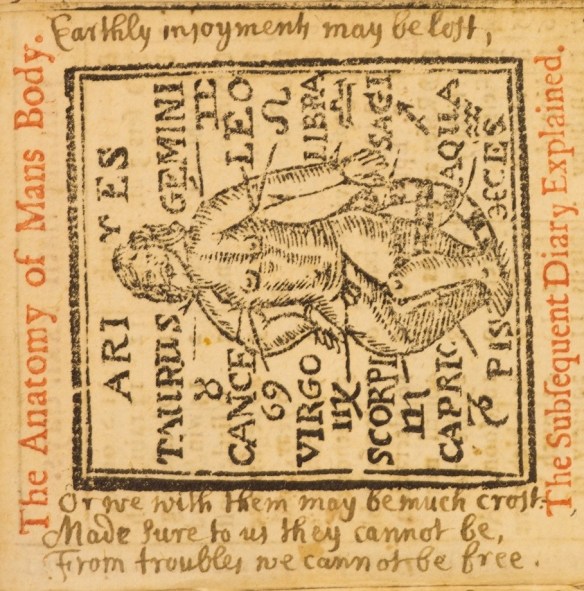 Earthly injoyments may be loſt,
The Anatomy of Mans Body.
ARI ♈ ES
TAURUS GEMINI
♉ ♊
CANCE LEO
♋ ♌
VIRGO LIBRA
♍ ♎
SCORPI SAGI
♏ ♐
CAPRIC AQUA
♑ ♒
PIS CES
The Subſequent Diary Explained.
Or we with them may be much croſt.
Made ſure to us they cannot be,
From troubles we cannot be free.